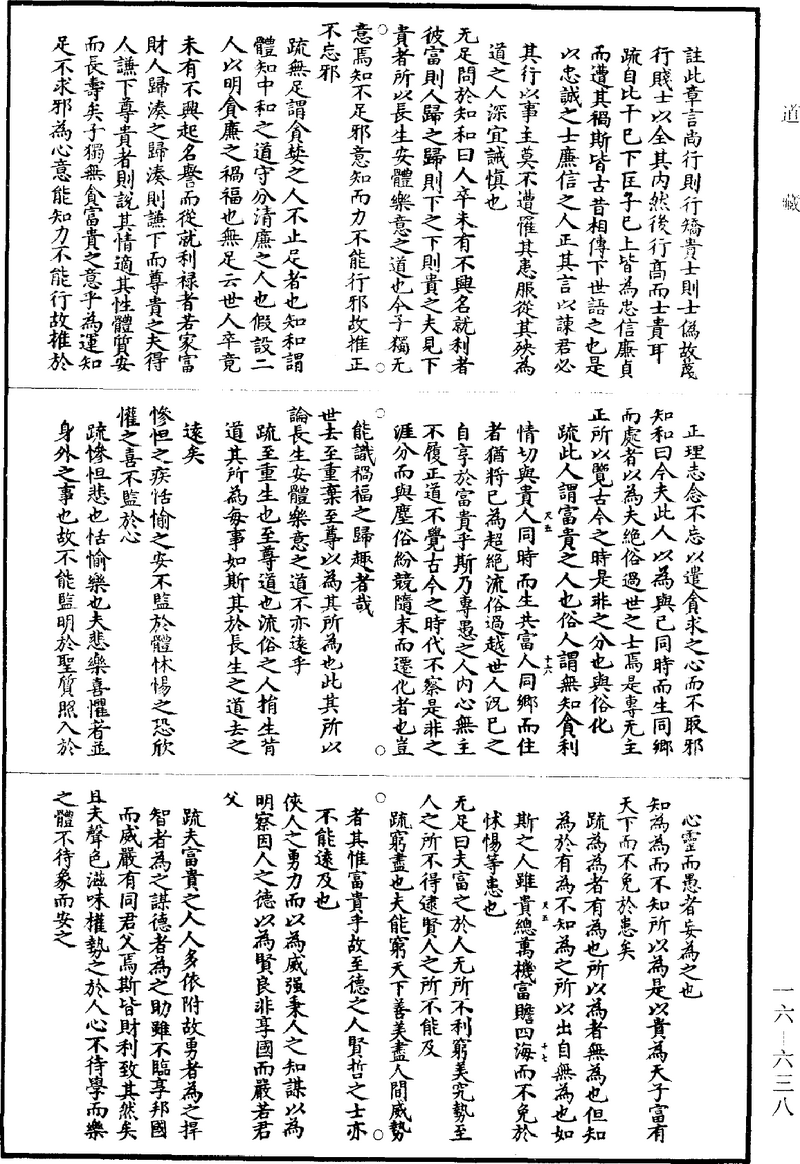 道藏
註此章言尚行則行矯貴士則士偽故蔑
行賤士以全其內然後行高而士貴耳
疏自比干已下匡子已上皆為忠信廉貞
而遭其禍斯皆古昔相傳下世語之也是
以忠誠之士廉信之人正其言以諫君必
其行以事主莫不遭罹其患服從其殃為
道之人深宜誡慎也
无足問於知和曰人卒未有不興名就利者
彼富則人歸之歸則下之下則貴之夫見下
貴者所以長生安體樂意之道也今子獨无
意焉知不足邪意知而力不能行邪故推正
不忘邪
疏無足謂貪婪之人不止足者也知和謂
體知中和之道守分清廉之人也假設二
人以明貪廉之禍福也無足云世人卒竟
未有不興起名譽而從就利祿者若家富
財人歸湊之歸湊則謙下而尊貴之夫得
人謙下尊貴者則說其情適其性體質安
而長壽矣子獨無貪富貴之意乎為運知
足不求邪為心意能知力不能行故推於
正理志念不忘以遣貪求之心而不取邪
知和曰今夫此人以為與己同時而生同鄉
而處者以為夫絕俗過世之士焉是專无主
正所以覽古今之時是非之分也與俗化
疏此人謂富貴之人也俗人謂無知貪利
情切與貴人同時而生共富人同鄉而住
者猶將己為超絕流俗過越世人況己之
自享於富貴乎斯乃專愚之人內心無主
不履正道不覺古今之時代不察是非之
涯分而與塵俗紛競隨末而遷化者也豈
能識禍福之歸趣者哉
世去至重棄至尊以為其所為也此其所以
論長生安體樂意之道不亦遠乎
疏至重生也至尊道也流俗之人捐生背
道其所為每事如斯其於長生之道去之
遠矣
慘怛之疾恬愉之安不監於體怵惕之恐欣
懽之喜不監於心
疏慘怛悲也恬愉樂也夫悲樂喜懼者並
身外之事也故不能監明於聖質照入於
心靈而愚者妄為之也
知為為而不知所以為是以貴為天子富有
天下而不免於患矣
疏為為者有為也所以為者無為也但知
為於有為不知為之所以出自無為也如
斯之人雖貴總萬機富贍四海而不免於
怵惕等患也
无足曰夫富之於人无所不利窮美究勢至
人之所不得逮賢人之所不能及
疏窮盡也夫能窮天下善美盡人間威勢
者其惟富貴乎故至德之人賢哲之士亦
不能遠及也
俠人之勇力而以為威強秉人之知謀以為
明察因人之德以為賢良非享國而嚴若君
父
疏夫富貴之人人多依附故勇者為之捍
智者為之謀德者為之助雖不臨享邦國
而威嚴有同君父焉斯皆財利致其然矣
且夫聲色滋味權勢之於人心不待學而樂
之體不待象而安之
尺五
十六
尺五
十七
一六—六三八